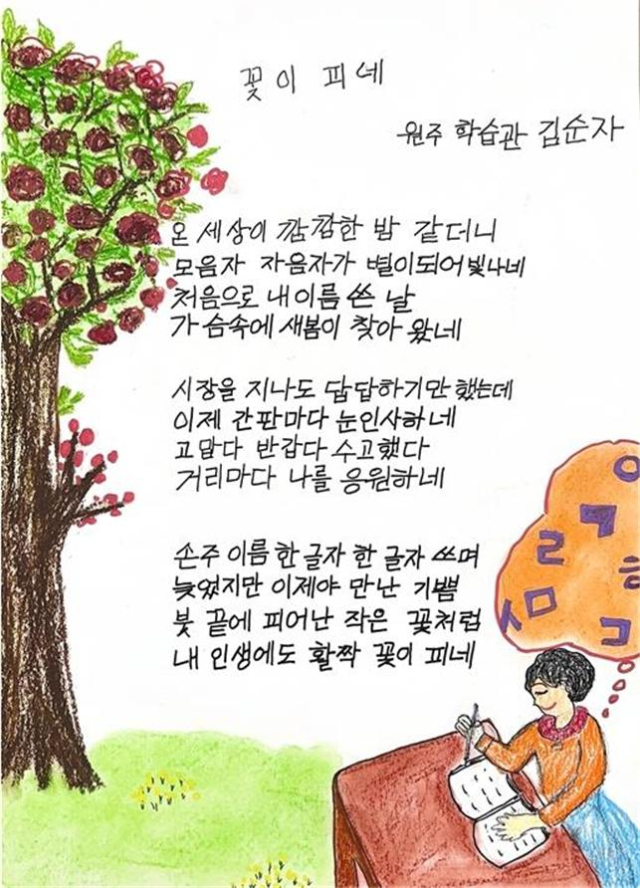 꽃이 피네
원주 학습관 김순자
온 세상이 깜깜한 밤 같더니
모음자 자음자가 별이되어 빛나네
처음으로 내이름 쓴 날
가슴속에 새봄이 찾아 왔네
시장을 지나도 답답하기만 했는데
이제 간판마다 눈인사하네
고맙다 반갑다 수고했다
거리마다 나를 응원하네
손주 이름 한 글자 한 글자 쓰며
늦었지만 이제야 만난 기쁨
붓 끝에 피어난 작은 꽃처럼
내 인생에도 활짝 꽃이 피네
ㅇ
ㄱ
ㄹ
ㅎ
ㅅ ㅁ
ㄷ